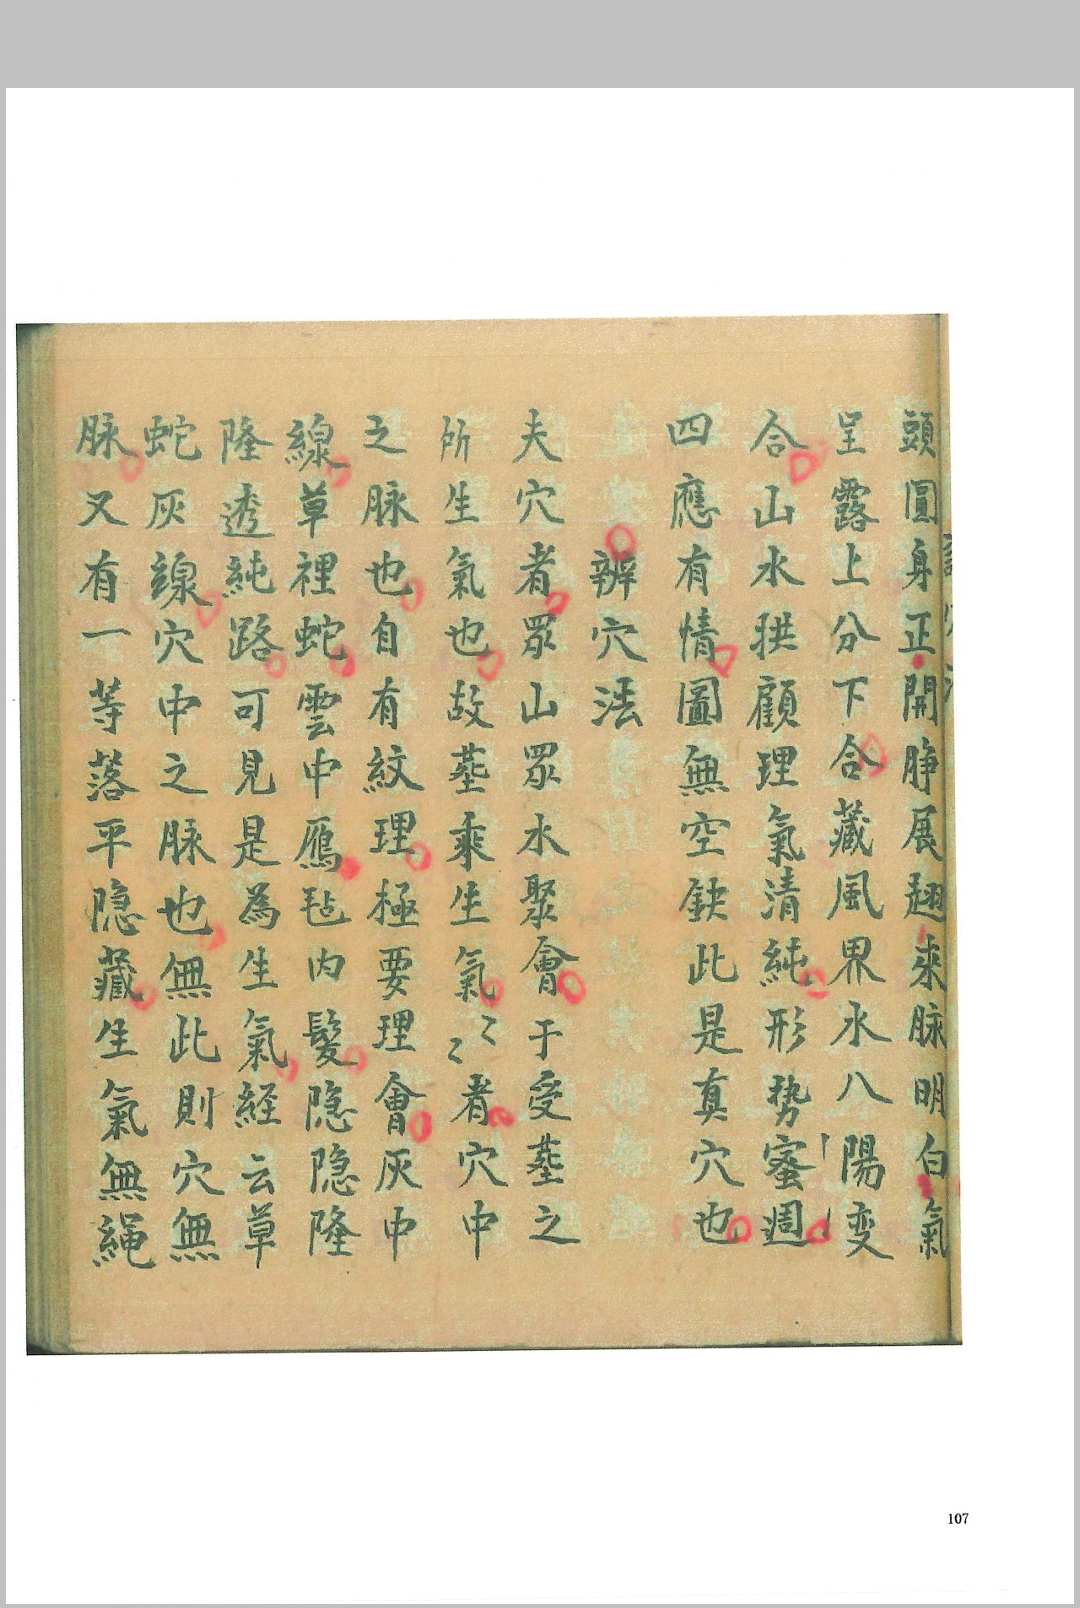 頭圓身正開睁展翅来脉明白氣
呈露上分下合藏風界水八陽变
合山水拱顧理氣清純形势蜜週
四應有情圖無空缺此是真穴也
辨穴法
夫穴者眾山眾水聚會于受塟之
所生氣也故塟乘生氣〻〻者穴中
之脉也自有紋理極要理會灰中
線草裡蛇雲中鴈毡内髮隐隐隆
隆透純路可見是為生氣経云草
蛇灰線穴中之脉也無此則穴無
脉又有一等落平隐藏生氣無繩
107